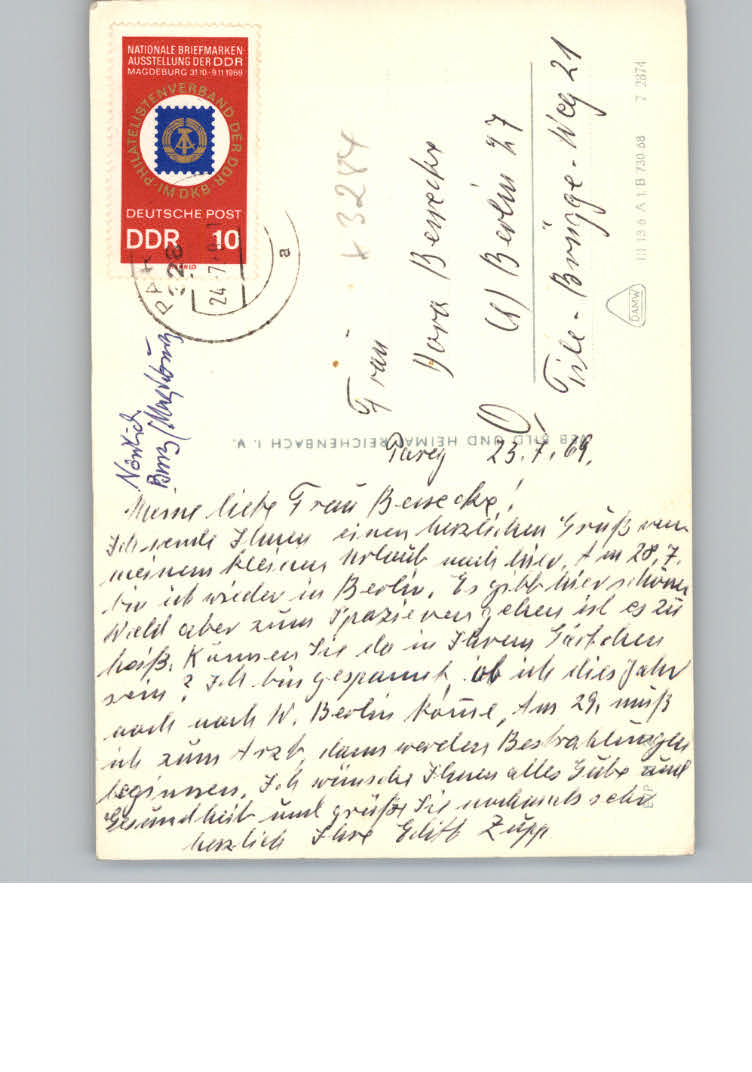 NATIONALE BRIEFMARKEN-
AUSSTELLUNG DER DDR
MAGDEBURG 31.10.-9.11.1969
PHILATELISTENVERBAND DER DDR
IM DKB
DEUTSCHE POST
DDR 10
24.7.
a
Nördlich
Burg/Magdeburg
3284
Frau
Dora Benecke
(1) Berlin 27
Tile-Brügge-Weg 21
III 13 6 A 1, B 730 68 7 2874
DAMW
VEB BILD UND HEIMAT REICHENBACH I. V.
Parey 23.7.69.
Meine liebe Frau Benecke!
Ich sende Ihnen einen herzlichen Gruß von
meinem kleinen Urlaub nach hier. Am 28.7.
bin ich wieder in Berlin. Es gibt hier schönen
Wald aber zum Spazieren gehen ist es zu
heiß. Können Sie da in Ihrem Gärtchen
sein? Ich bin gespannt, ob ich dies Jahr
noch nach W. Berlin komme. Am 29. muß
ich zum Arzt, dann werden Bestrahlungen
beginnen. Ich wünsche Ihnen alles Gute und
Gesundheit und grüße Sie nochmals sehr
herzlich Ihre Edith Zupp